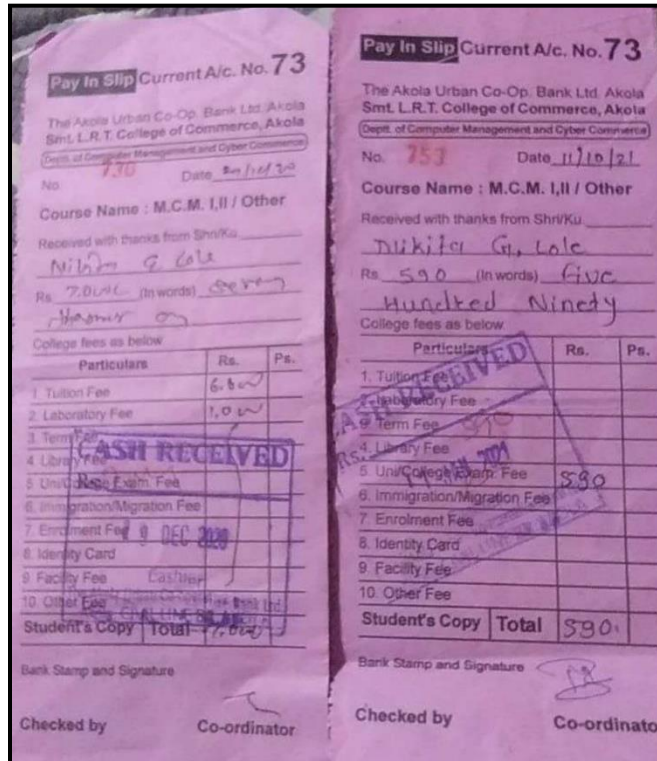 Pay In Slip Current A/c. No. 73
The Akola Urban Co-Op. Bank Ltd. Akola
Smt. L.R.T. College of Commerce, Akola
(Deptt. of Computer Management and Cyber Commerce)
No. Date
Course Name : M.C.M. I,II / Other
Received with thanks from Shri/Ku
G. Lole
Rs. (In words)
College fees as below
Particulars Rs. Ps.
1. Tuition Fee
2. Laboratory Fee
3. Term Fee
4. Library Fee
5. Uni/College Exam. Fee
6. Immigration/Migration Fee
7. Enrolment Fee
8. Identity Card
9. Facility Fee
10. Other Fee
Student's Copy Total
CASH RECEIVED
DEC 2020
Cashier
Bank Stamp and Signature
Checked by Co-ordinator
Pay In Slip Current A/c. No. 73
The Akola Urban Co-Op. Bank Ltd. Akola
Smt. L.R.T. College of Commerce, Akola
(Deptt. of Computer Management and Cyber Commerce)
No. 753 Date 11/10/21
Course Name : M.C.M. I,II / Other
Received with thanks from Shri/Ku
Nikita G. Lole
Rs. 590 (In words) Five
Hundred Ninety
College fees as below
Particulars Rs. Ps.
1. Tuition Fee
2. Laboratory Fee
3. Term Fee
4. Library Fee
5. Uni/College Exam. Fee 590
6. Immigration/Migration Fee
7. Enrolment Fee
8. Identity Card
9. Facility Fee
10. Other Fee
Student's Copy Total 590
CASH RECEIVED
Rs.
Bank Stamp and Signature
Checked by Co-ordinato